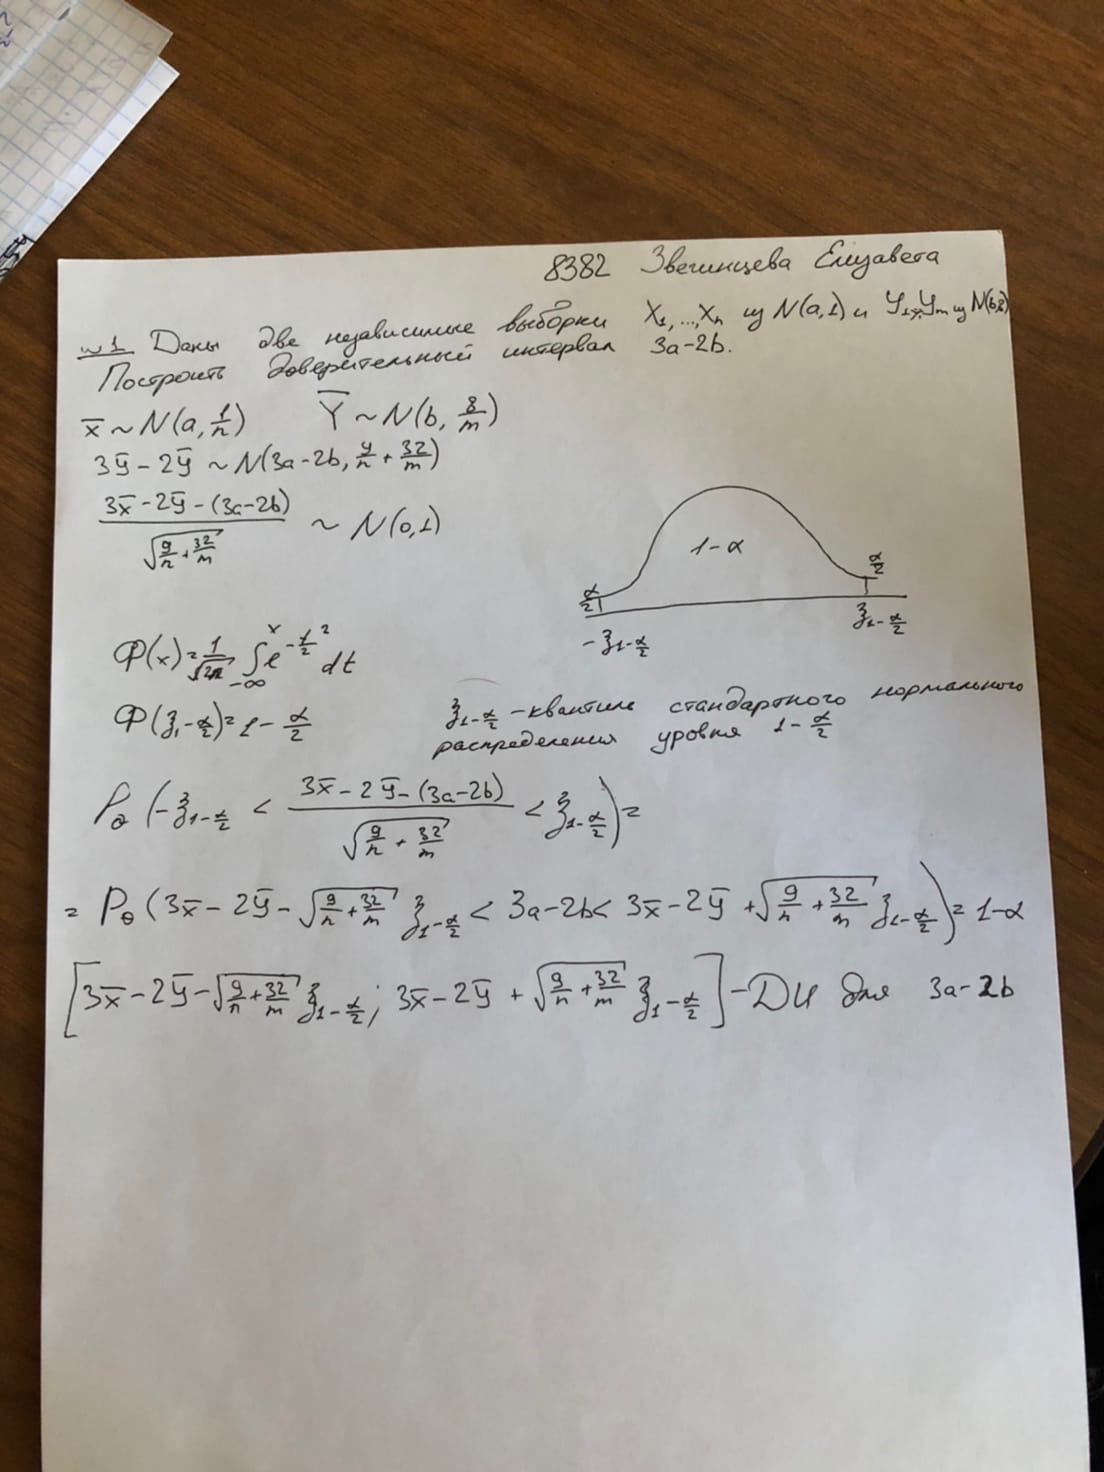 8382 Звегинцева Елизавета
№1 Даны две независимые выборки X₁, ..., Xₙ из N(a,1) и Y₁,..,Yₘ из N(b,8)
Построить доверительный интервал 3a-2b.
x̄ ~ N(a, 1/n) Ȳ ~ N(b, 8/m)
3ȳ - 2ȳ ~ N(3a-2b, 9/n + 32/m)
(3x̄ - 2ȳ - (3a-2b)) / √(9/n + 32/m) ~ N(0,1)
1-α
α/2
α/2
-ξ_{1-α/2}
ξ_{1-α/2}
Φ(x) = 1/√(2π) ∫_{-∞}^{x} e^{-t²/2} dt
Φ(ξ_{1-α/2}) = 1 - α/2
ξ_{1-α/2} - квантиль стандартного нормального
распределения уровня 1-α/2
P_θ (-ξ_{1-α/2} < (3x̄ - 2ȳ - (3a-2b)) / √(9/n + 32/m) < ξ_{1-α/2}) =
= P_θ (3x̄ - 2ȳ - √(9/n + 32/m) ξ_{1-α/2} < 3a-2b < 3x̄ - 2ȳ + √(9/n + 32/m) ξ_{1-α/2}) = 1-α
[3x̄ - 2ȳ - √(9/n + 32/m) ξ_{1-α/2} ; 3x̄ - 2ȳ + √(9/n + 32/m) ξ_{1-α/2}] - ДИ для 3a-2b